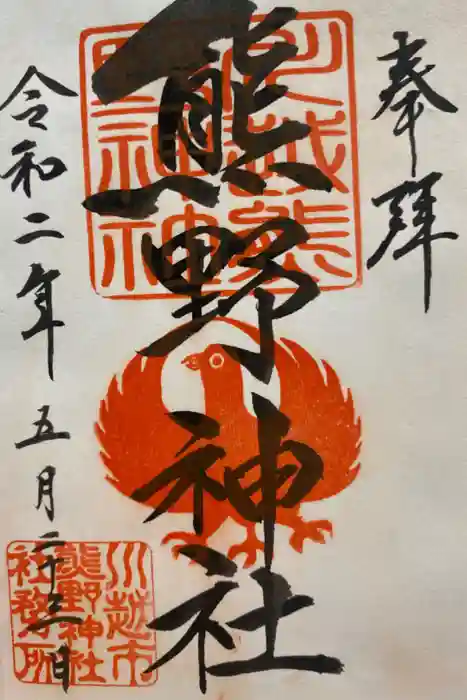 奉拝
熊野神社
川越熊野神社
令和二年五月二十三日
川越市
熊野神社
社務所